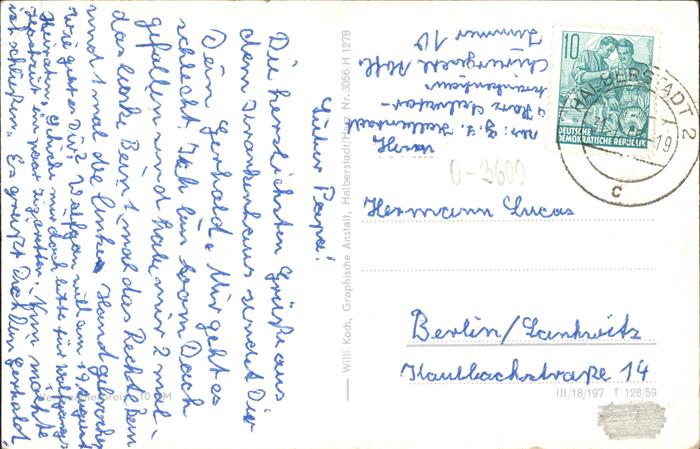 Lieber Papa!
Die herzlichsten Grüße aus
dem Krankenhaus sendet Dir
Dein Gerhald. Mir geht es
schlecht. Ich bin vom Dach
gefallen und habe mir 2 mal
das linke Bein 1 mal das Rechte Bein
und 1 mal die linke Hand gebrochen
Wie geht es Dir? Wolfgan will am 19. August
Heiraten. Schicke mir doch bitte für Wolfgangs
Hochzeit ein paar Zigaretten. Nun möchte
ich schließen. Es grüßt Dich Dein Gerhald.
Verbraucherpreis 10 DPM
Willi Koch, Graphische Anstalt, Halberstadt/Harz Nr. 3056 H 1278
Halberstadt
Krankenhaus
Zimmer 10
10
DEUTSCHE
DEMOKRATISCHE REPUBLIK
HALBERSTADT 2
C
0-3600
Hermann Lucas
Berlin/Lankwitz
Kaulbachstraße 14
III/18/197 T 128/59